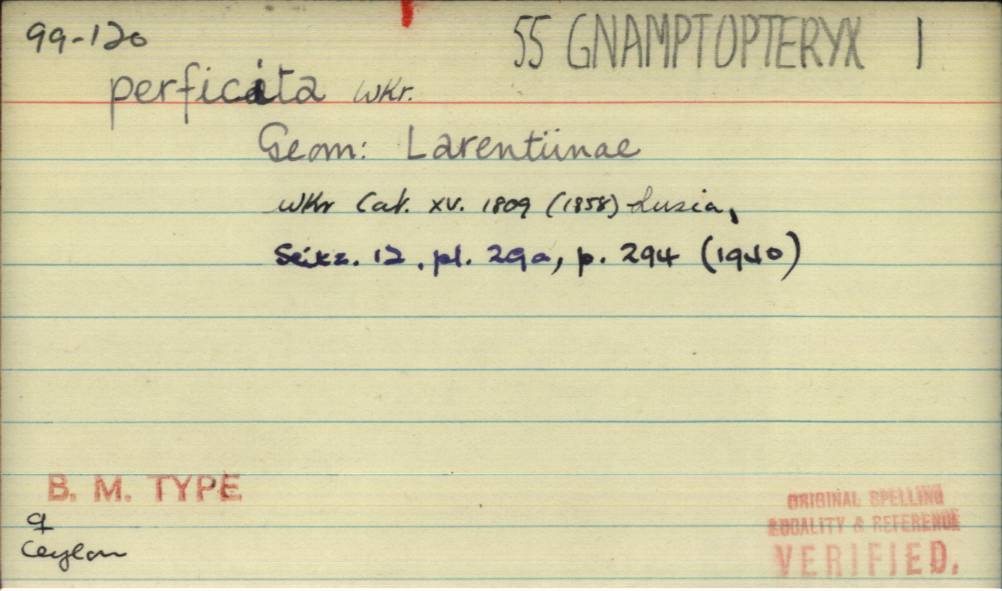 99-120 55 GNAMPTOPTERYX 1
perficita Wkr.
Geom: Larentiinae
Wkr Cat. XV. 1809 (1858) Lusia,
Seitz. 12. pl. 29a, p. 294 (1940)
B. M. TYPE
♀
Ceylon
ORIGINAL SPELLING
LOCALITY & REFERENCE
VERIFIED.